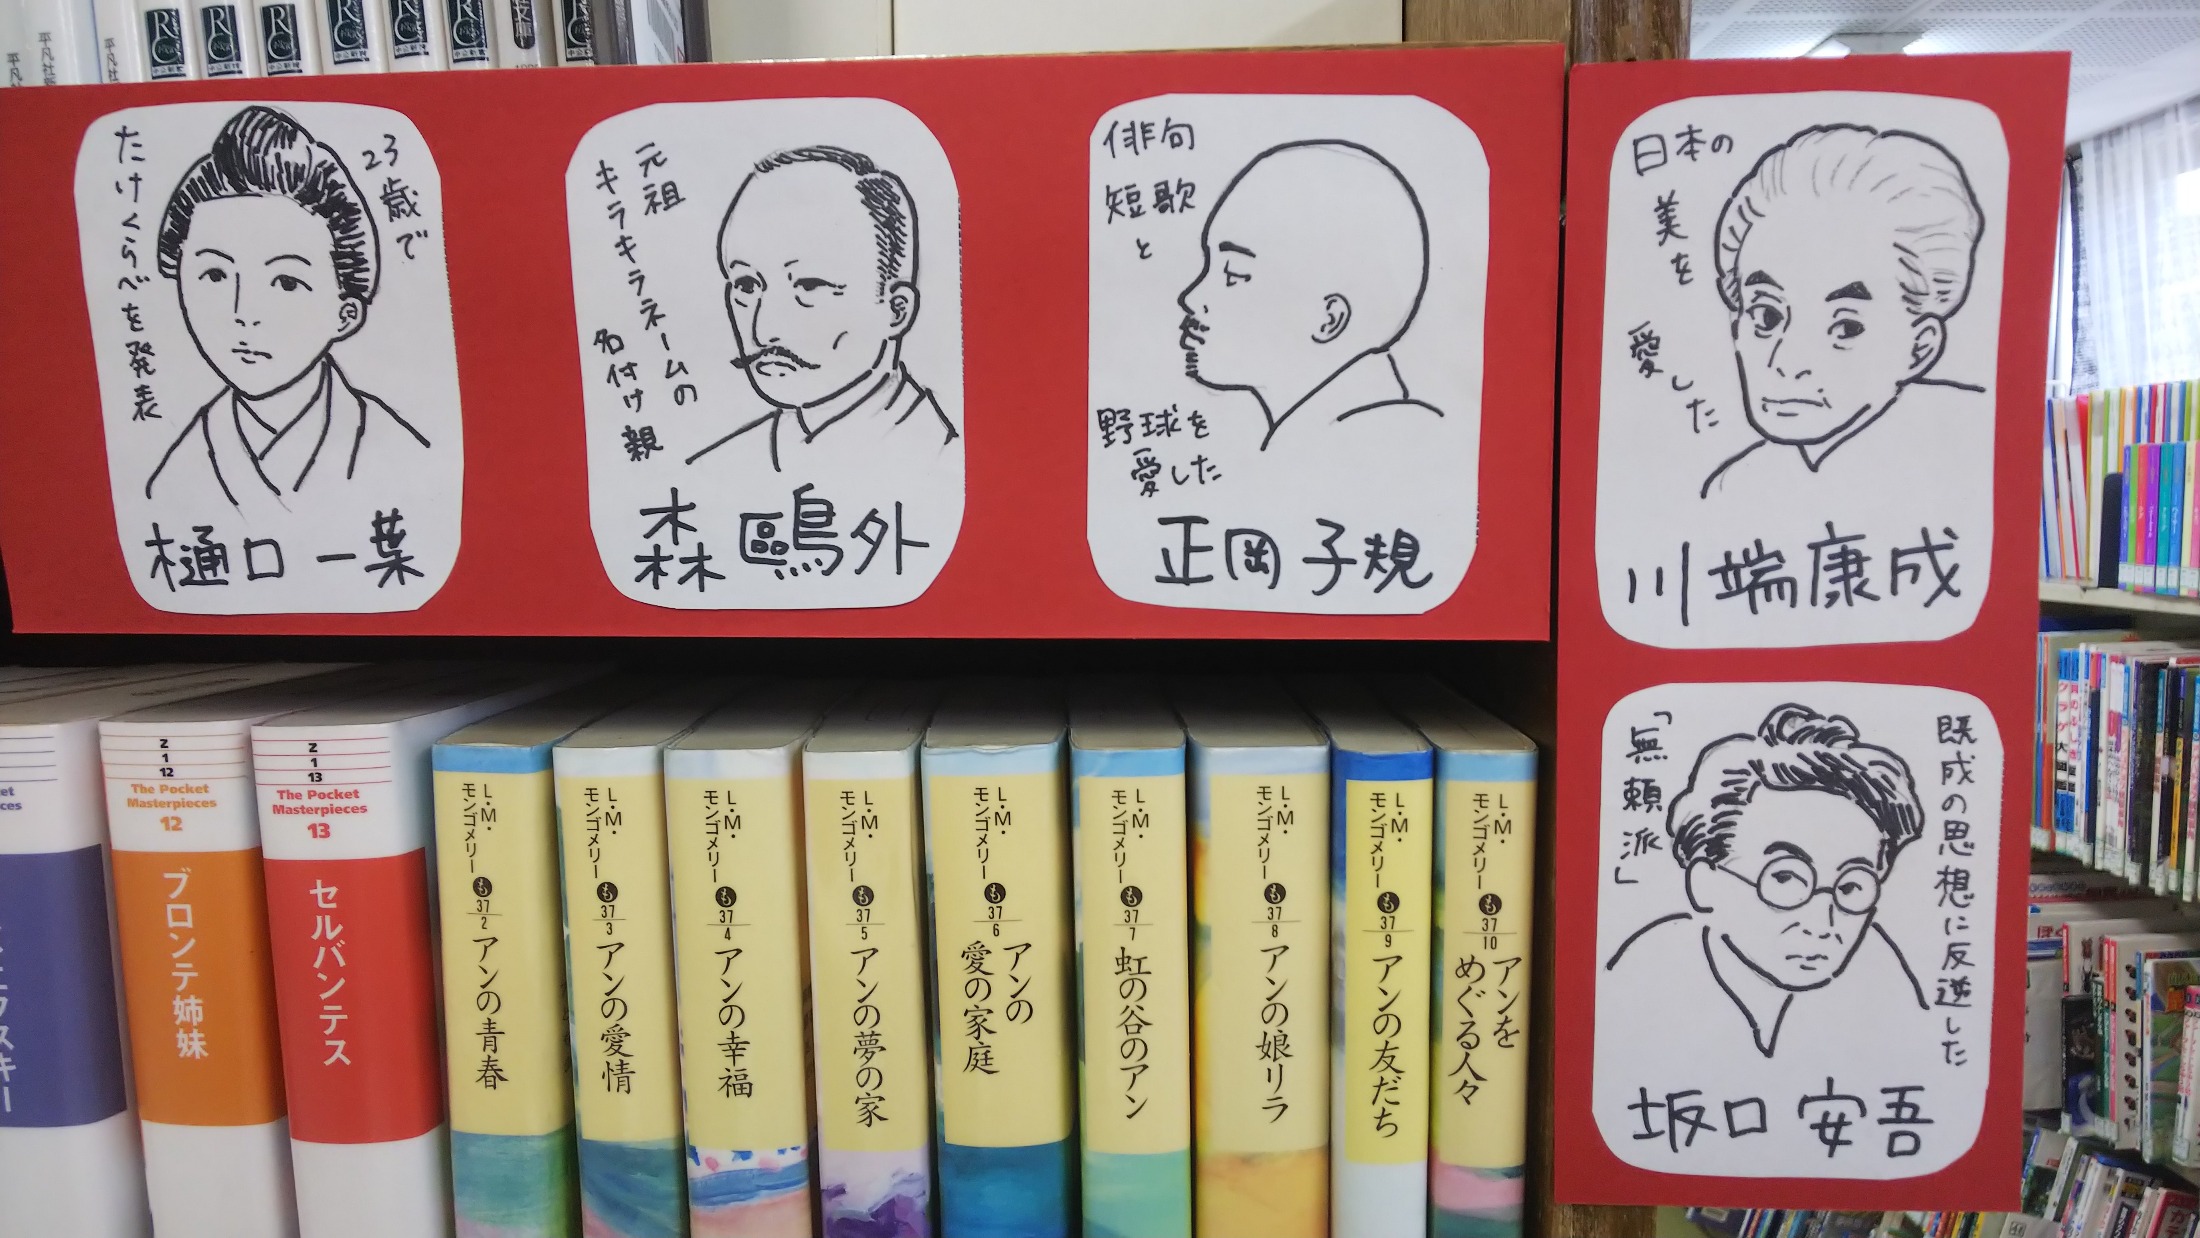 平凡社新
平凡社
23歳で
たけくらべを発表
樋口一葉
元祖
キラキラネームの
名付け親
森鷗外
俳句
短歌
と
野球を
愛した
正岡子規
日本の
美を
愛した
川端康成
既成の思想に反逆した
「無頼派」
坂口安吾
Z
1
12
The Pocket
Masterpieces
12
ブロンテ姉妹
Z
1
13
The Pocket
Masterpieces
13
セルバンテス
L・M・
モンゴメリー
も
37
2
アンの青春
L・M・
モンゴメリー
も
37
3
アンの愛情
L・M・
モンゴメリー
も
37
4
アンの幸福
L・M・
モンゴメリー
も
37
5
アンの夢の家
L・M・
モンゴメリー
も
37
6
アンの
愛の家庭
L・M・
モンゴメリー
も
37
7
虹の谷のアン
L・M・
モンゴメリー
も
37
8
アンの娘リラ
L・M・
モンゴメリー
も
37
9
アンの友だち
L・M・
モンゴメリー
も
37
10
アンを
めぐる人々